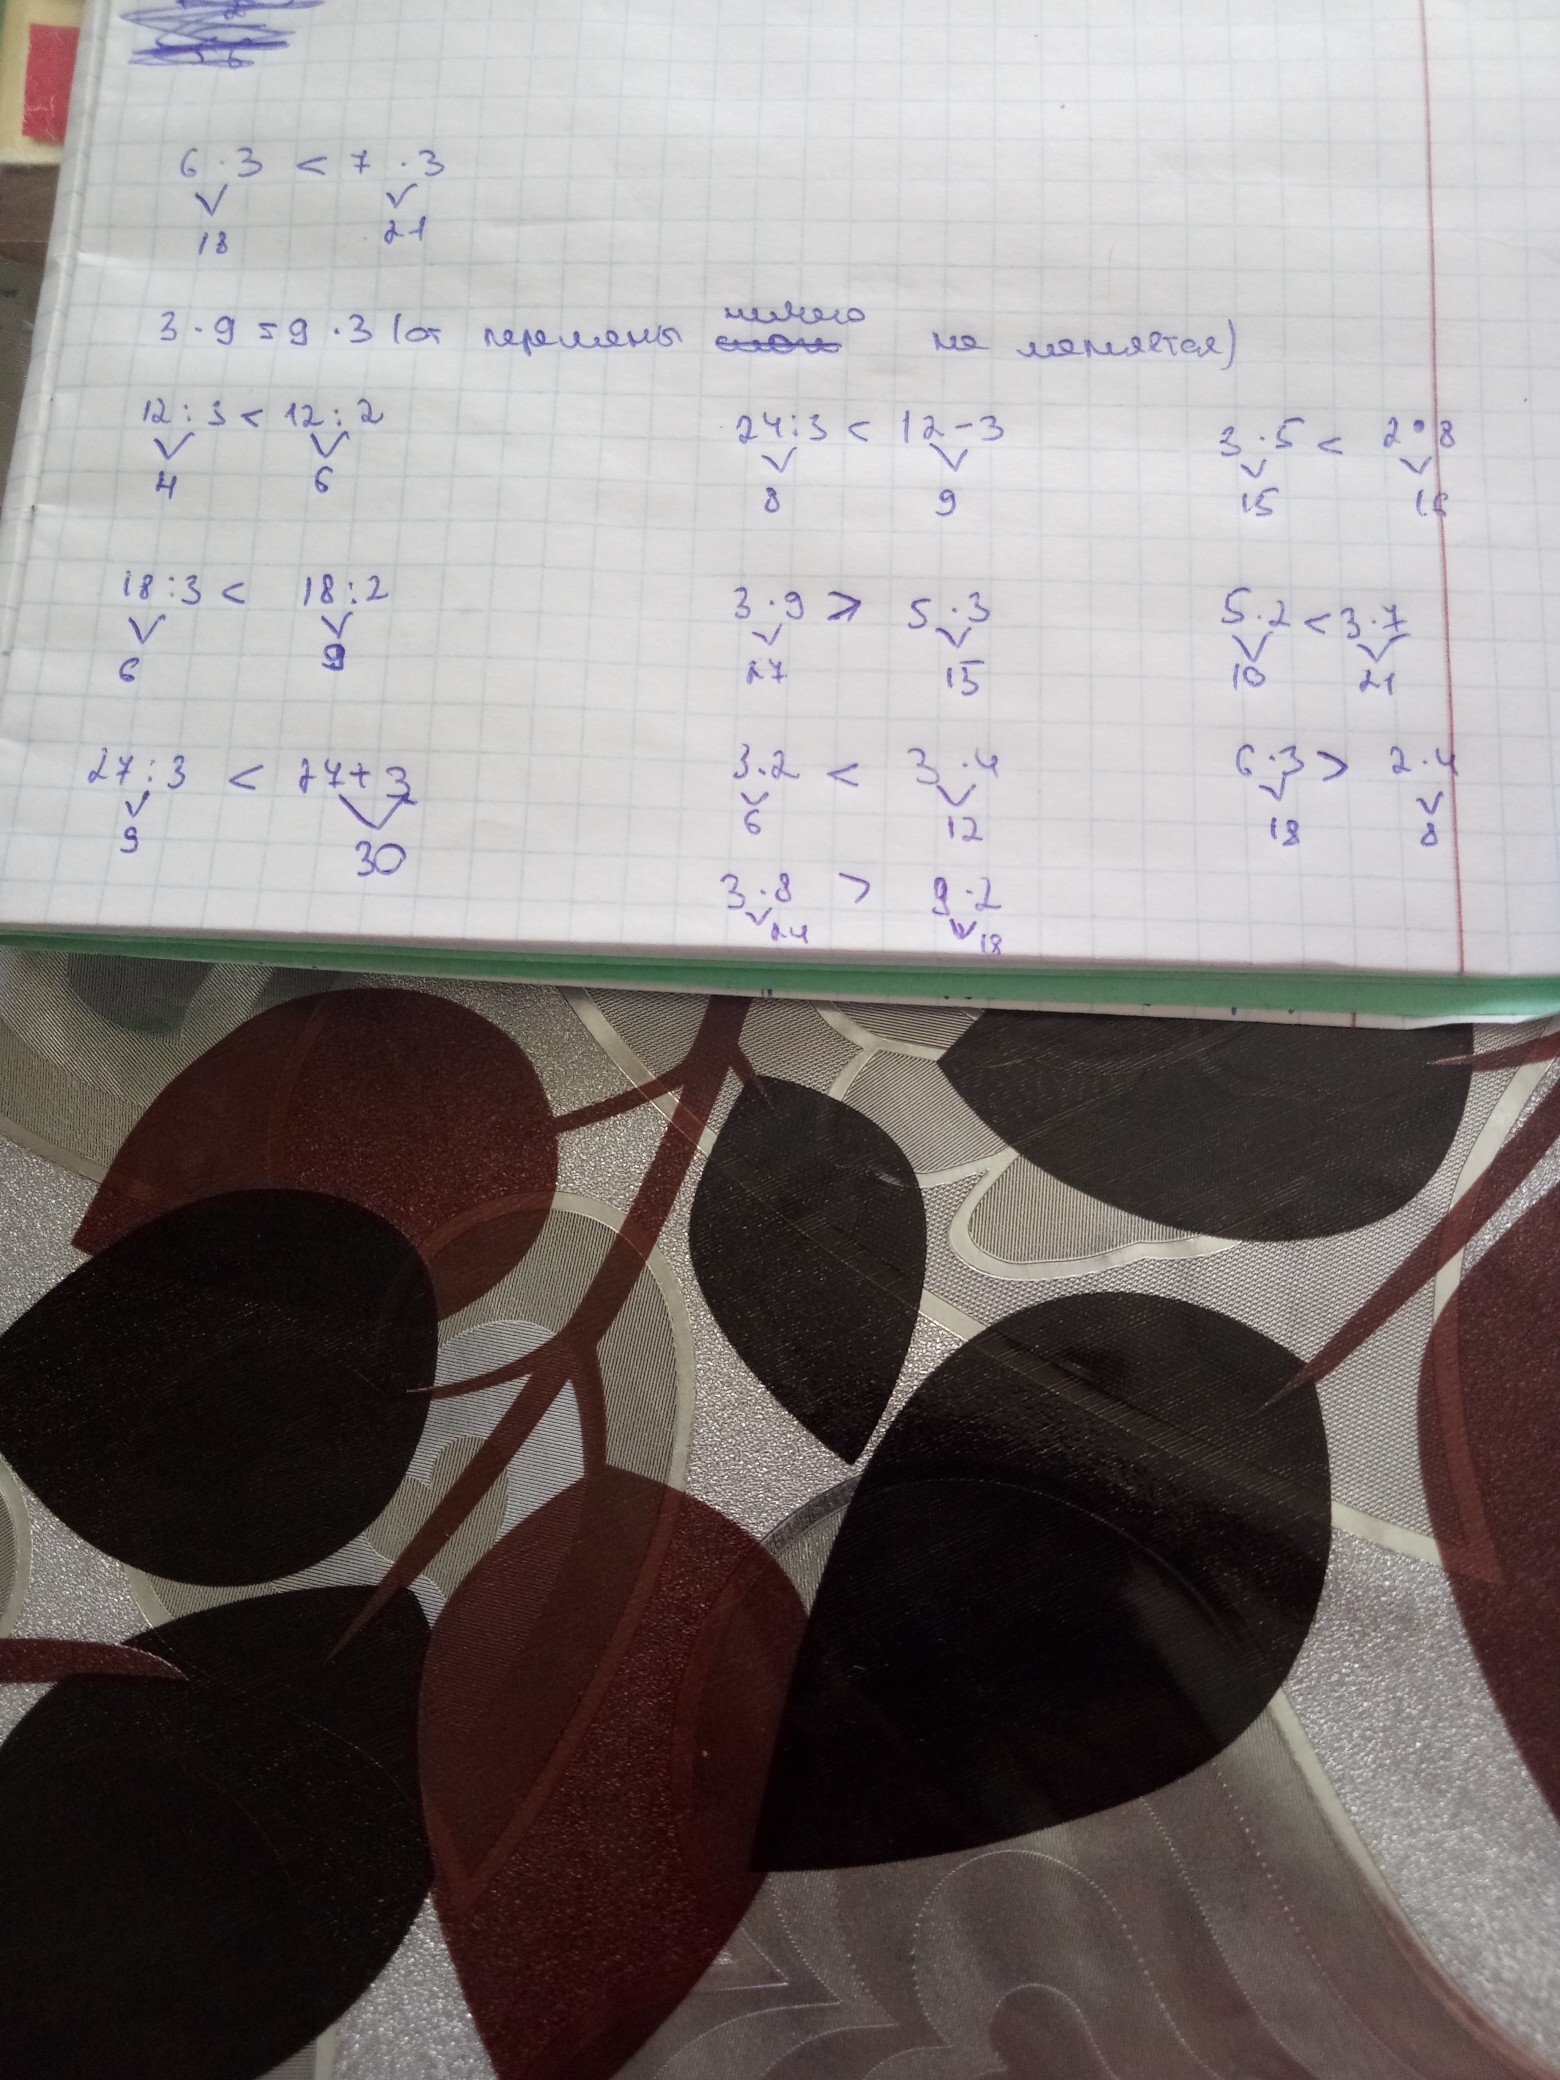 6 · 3 < 7 · 3
18 21
ничего
3 · 9 = 9 · 3 (от перемены не меняется)
12 : 3 < 12 : 2 24 : 3 < 12 - 3 3 · 5 < 2 · 8
4 6 8 9 15 16
18 : 3 < 18 : 2 3 · 9 > 5 · 3 5 · 2 < 3 · 7
6 9 27 15 10 21
27 : 3 < 27 + 3 3 · 2 < 3 · 4 6 · 3 > 2 · 4
9 30 6 12 18 8
3 · 8 > 9 · 2
24 18